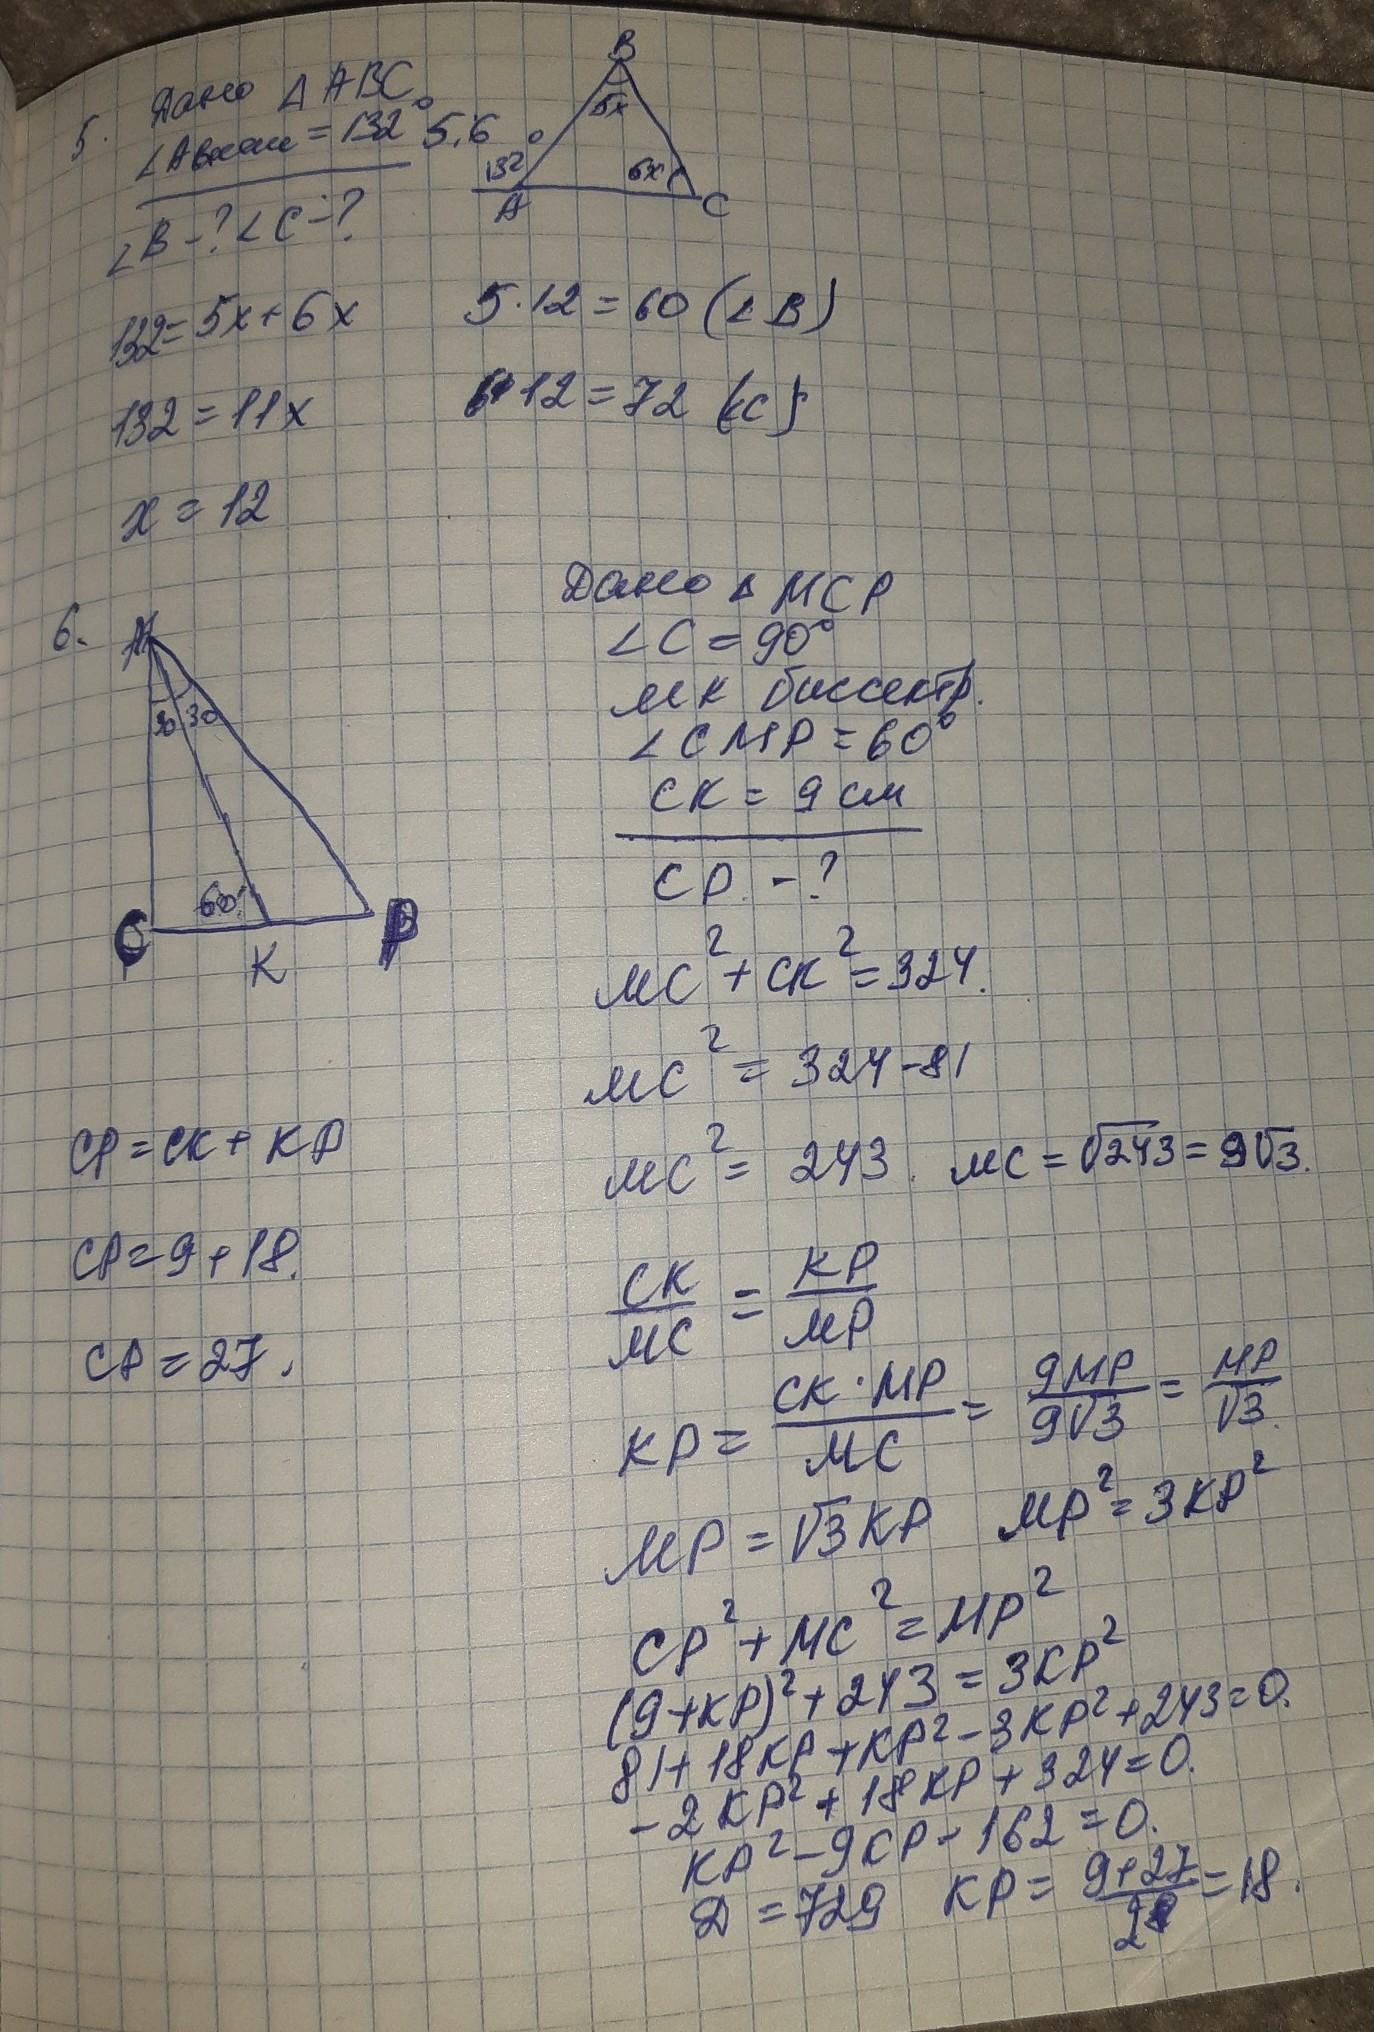 5. Дано ΔABC
∠Aвнеш = 132° 5:6
∠B-? ∠C-?
B
5x
132°
6x
A
C
132=5x+6x
5·12=60 (∠B)
132=11x
6·12=72 (∠C)
x=12
6.
M
30 30
60°
C
K
P
Дано Δ MCP
∠C=90°
MK биссектр.
∠CMP=60°
CK=9см
CP-?
MC²+CK²=324.
MC²=324-81
MC²=243. MC=√243=9√3.
CK/MC=KP/MP
KP=CK·MP/MC=9MP/9√3=MP/√3.
MP=√3KP MP²=3KP²
CP²+MC²=MP²
(9+KP)²+243=3KP²
81+18KP+KP²-3KP²+243=0.
-2KP²+18KP+324=0.
KP²-9KP-162=0.
Д=729 KP=9+27/2=18.
CP=CK+KP
CP=9+18.
CP=27.